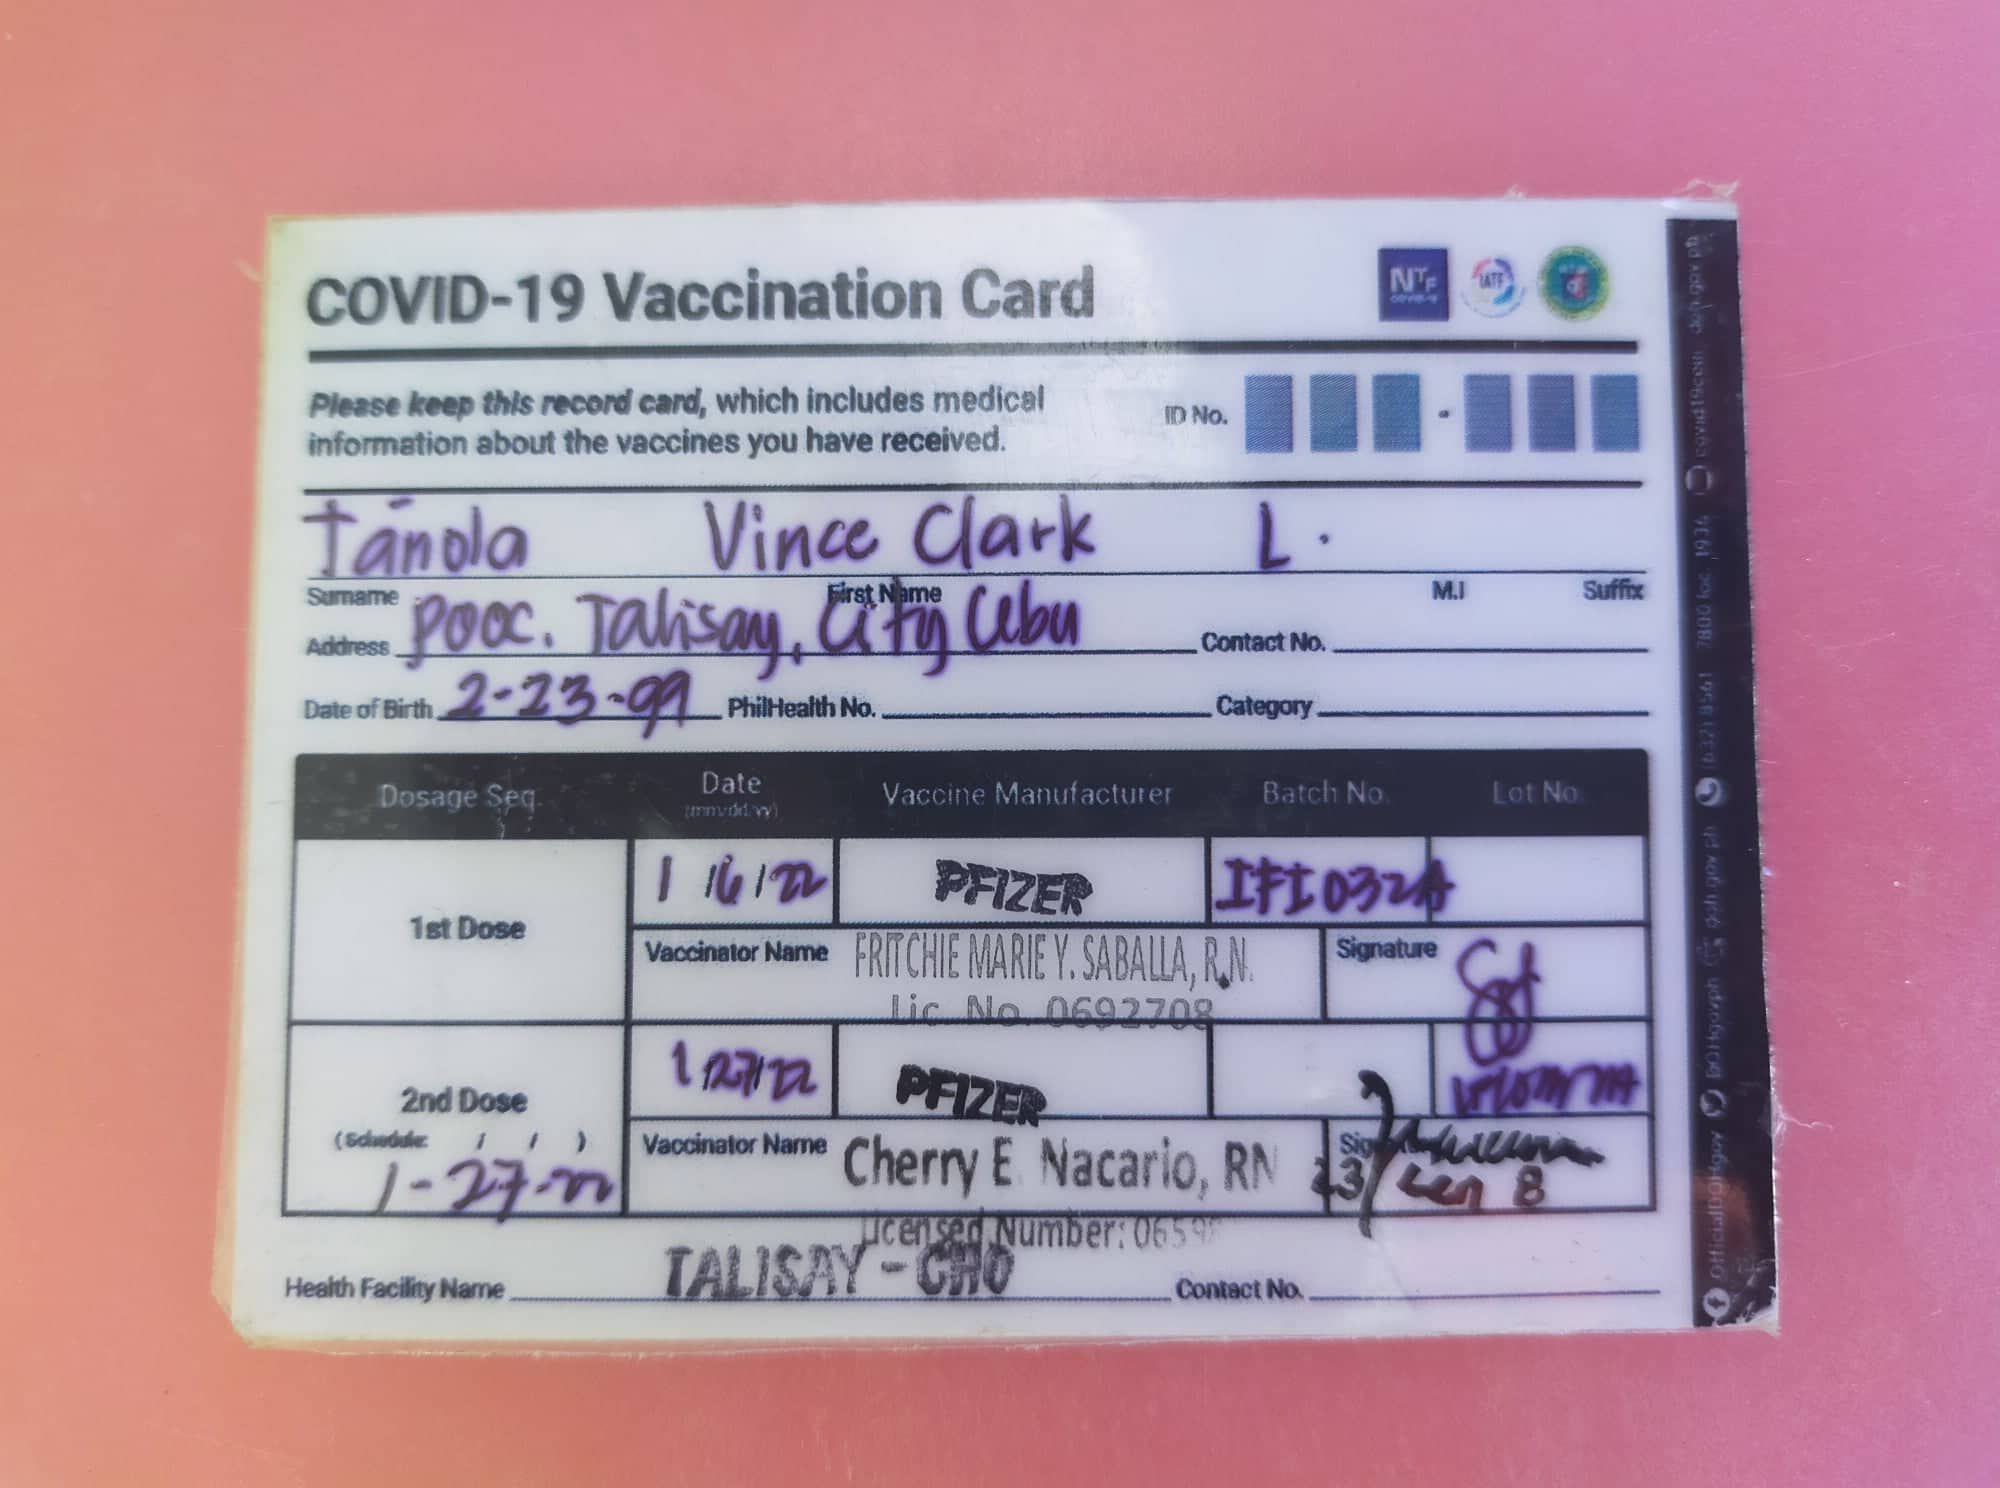 COVID-19 Vaccination Card
NTF
COVID-19
IATF
Please keep this record card, which includes medical
information about the vaccines you have received.
ID No. -
Tañola Vince Clark L.
Surname First Name M.I Suffix
Address Pooc. Talisay, City Cebu Contact No.
Date of Birth 2-23-99 PhilHealth No. Category
Dosage Seq. Date Vaccine Manufacturer Batch No. Lot No.
(mm/dd/yy)
1st Dose 1/6/22 PFIZER IFI032A
Vaccinator Name FRITCHIE MARIE Y. SABALLA, R.N. Signature
Lic. No. 0692708
2nd Dose 1/27/22 PFIZER
(Schedule: / / )
1-27-22
Vaccinator Name Cherry E. Nacario, RN
Licensed Number: 0659
Health Facility Name TALISAY - CHO Contact No.
OfficialDOHgov DOHgovph doh.gov.ph (632) 8561 7800 loc 1936